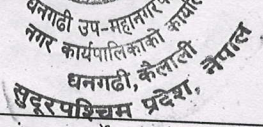 धनगढी उप-महानगर
नगर कार्यपालिकाको
धनगढी, कैलाली
सुदूरपश्चिम प्रदेश, नेपाल